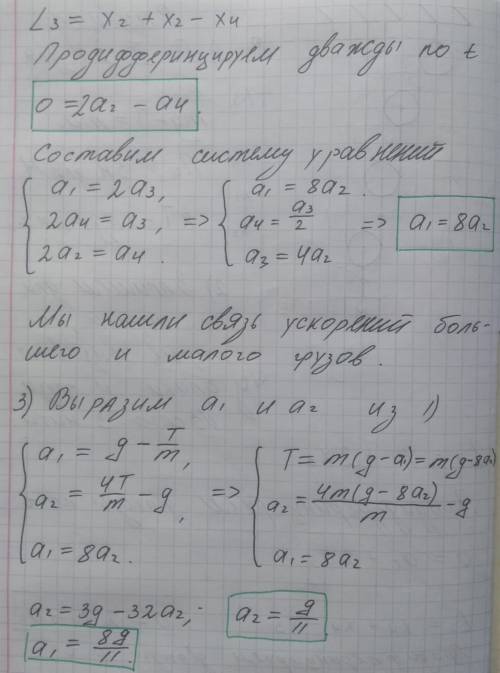 L₃ = x₂ + x₂ - x₄
Продифференцируем дважды по t
0 = 2a₂ - a₄.
Составим систему уравнений
{ a₁ = 2a₃, 2a₄ = a₃, 2a₂ = a₄. => { a₁ = 8a₂. a₄ = a₃/2 a₃ = 4a₂ => a₁ = 8a₂
Мы нашли связь ускорений боль-
шего и малого грузов.
3) Выразим a₁ и a₂ из 1)
{ a₁ = g - T/m, a₂ = 4T/m - g, a₁ = 8a₂. => { T = m(g-a₁) = m(g-8a₂) a₂ = 4m(g-8a₂)/m - g a₁ = 8a₂
a₂ = 3g - 32a₂, a₂ = g/11
a₁ = 8g/11.